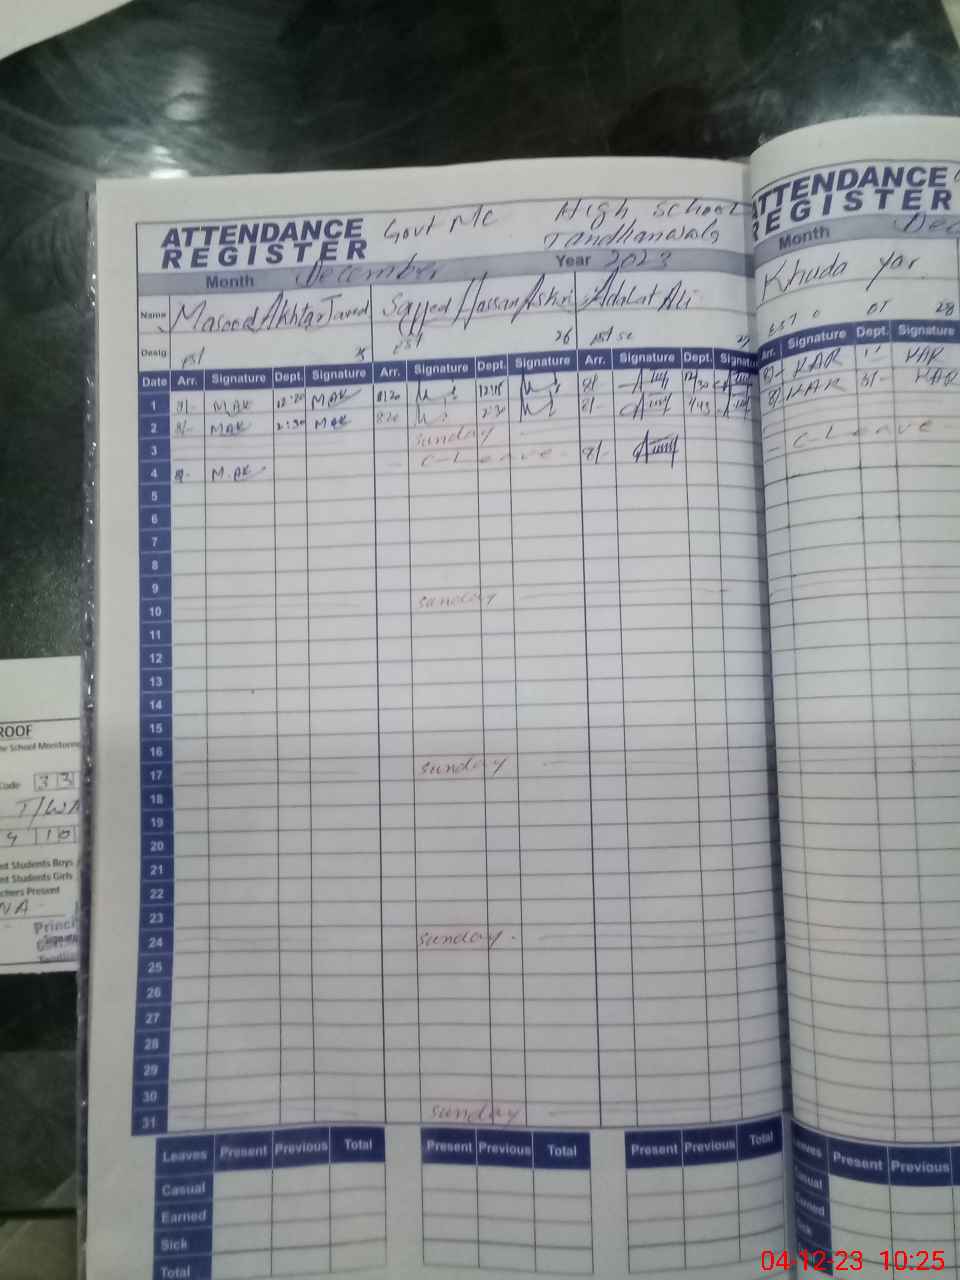 ATTENDANCE REGISTER Govt MC High School Tandlianwala
Month December Year 2023
Name Masood Akhtar Javed Sayyed Hassan Askri Adalat Ali
Desig. PST 25 EST 26 27
Date Arr. Signature Dept. Signature Arr. Signature Dept. Signature Arr. Signature Dept. Signature
1 8/- MAK 12:20 MAK 8:20 12:15 8/- 12/30
2 8/- MAK 2:30 MAK 820 2:30 8/- 1/45
3 Sunday
4 8/- M.AK C-Leave 8/-
5
6
7
8
9
10 Sunday
11
12
13
14
15
16
17 Sunday
18
19
20
21
22
23
24 Sunday
25
26
27
28
29
30
31 Sunday
Leaves Present Previous Total Present Previous Total Present Previous Total
Casual
Earned
Sick
Total
ATTENDANCE
REGISTER
Month Dec
Khuda Yar
28
Arr. Signature Dept. Signature
8/- KAR KAR
8/- KAR KAR
C-Leave
Leaves Present Previous
Casual
Earned
Sick
Total
ROOF
School Monitoring
Code 33
T/WA
4 10
Students Boys
Students Girls
Teachers Present
NA
Princi
Signatu
04-12-23 10:25